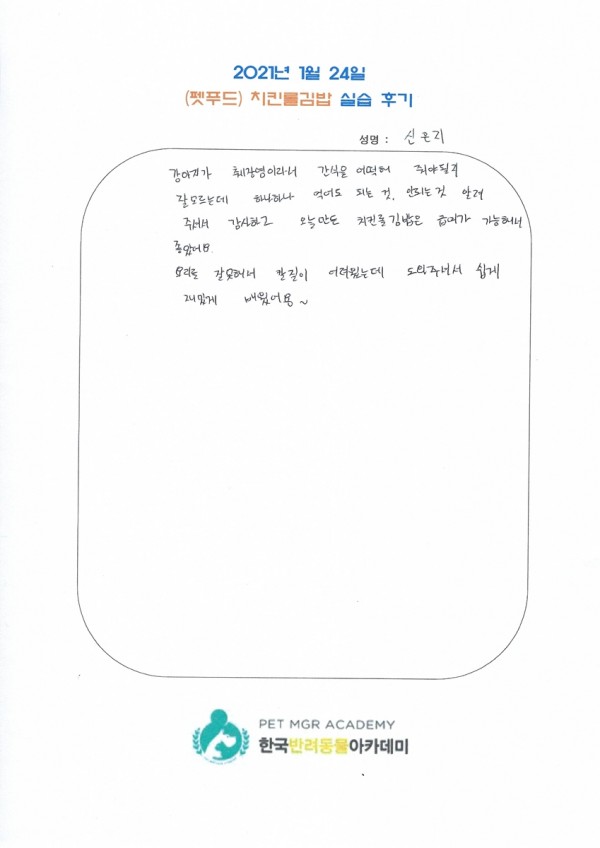 2021년 1월 24일
(펫푸드) 치킨롤김밥 실습 후기
성명 : 신은지
강아지가 췌장염이라서 간식을 어떡해 줘야될지
잘모르는데 하나하나 먹어도 되는 것, 안되는것 알려
주셔서 감사하고 오늘만든 치킨롤김밥은 급여가 가능해서
좋았어요.
요리를 잘못해서 칼질이 어려웠는데 도와주셔서 쉽게
재밌게 배웠어용~
PET MGR ACADEMY
한국반려동물아카데미